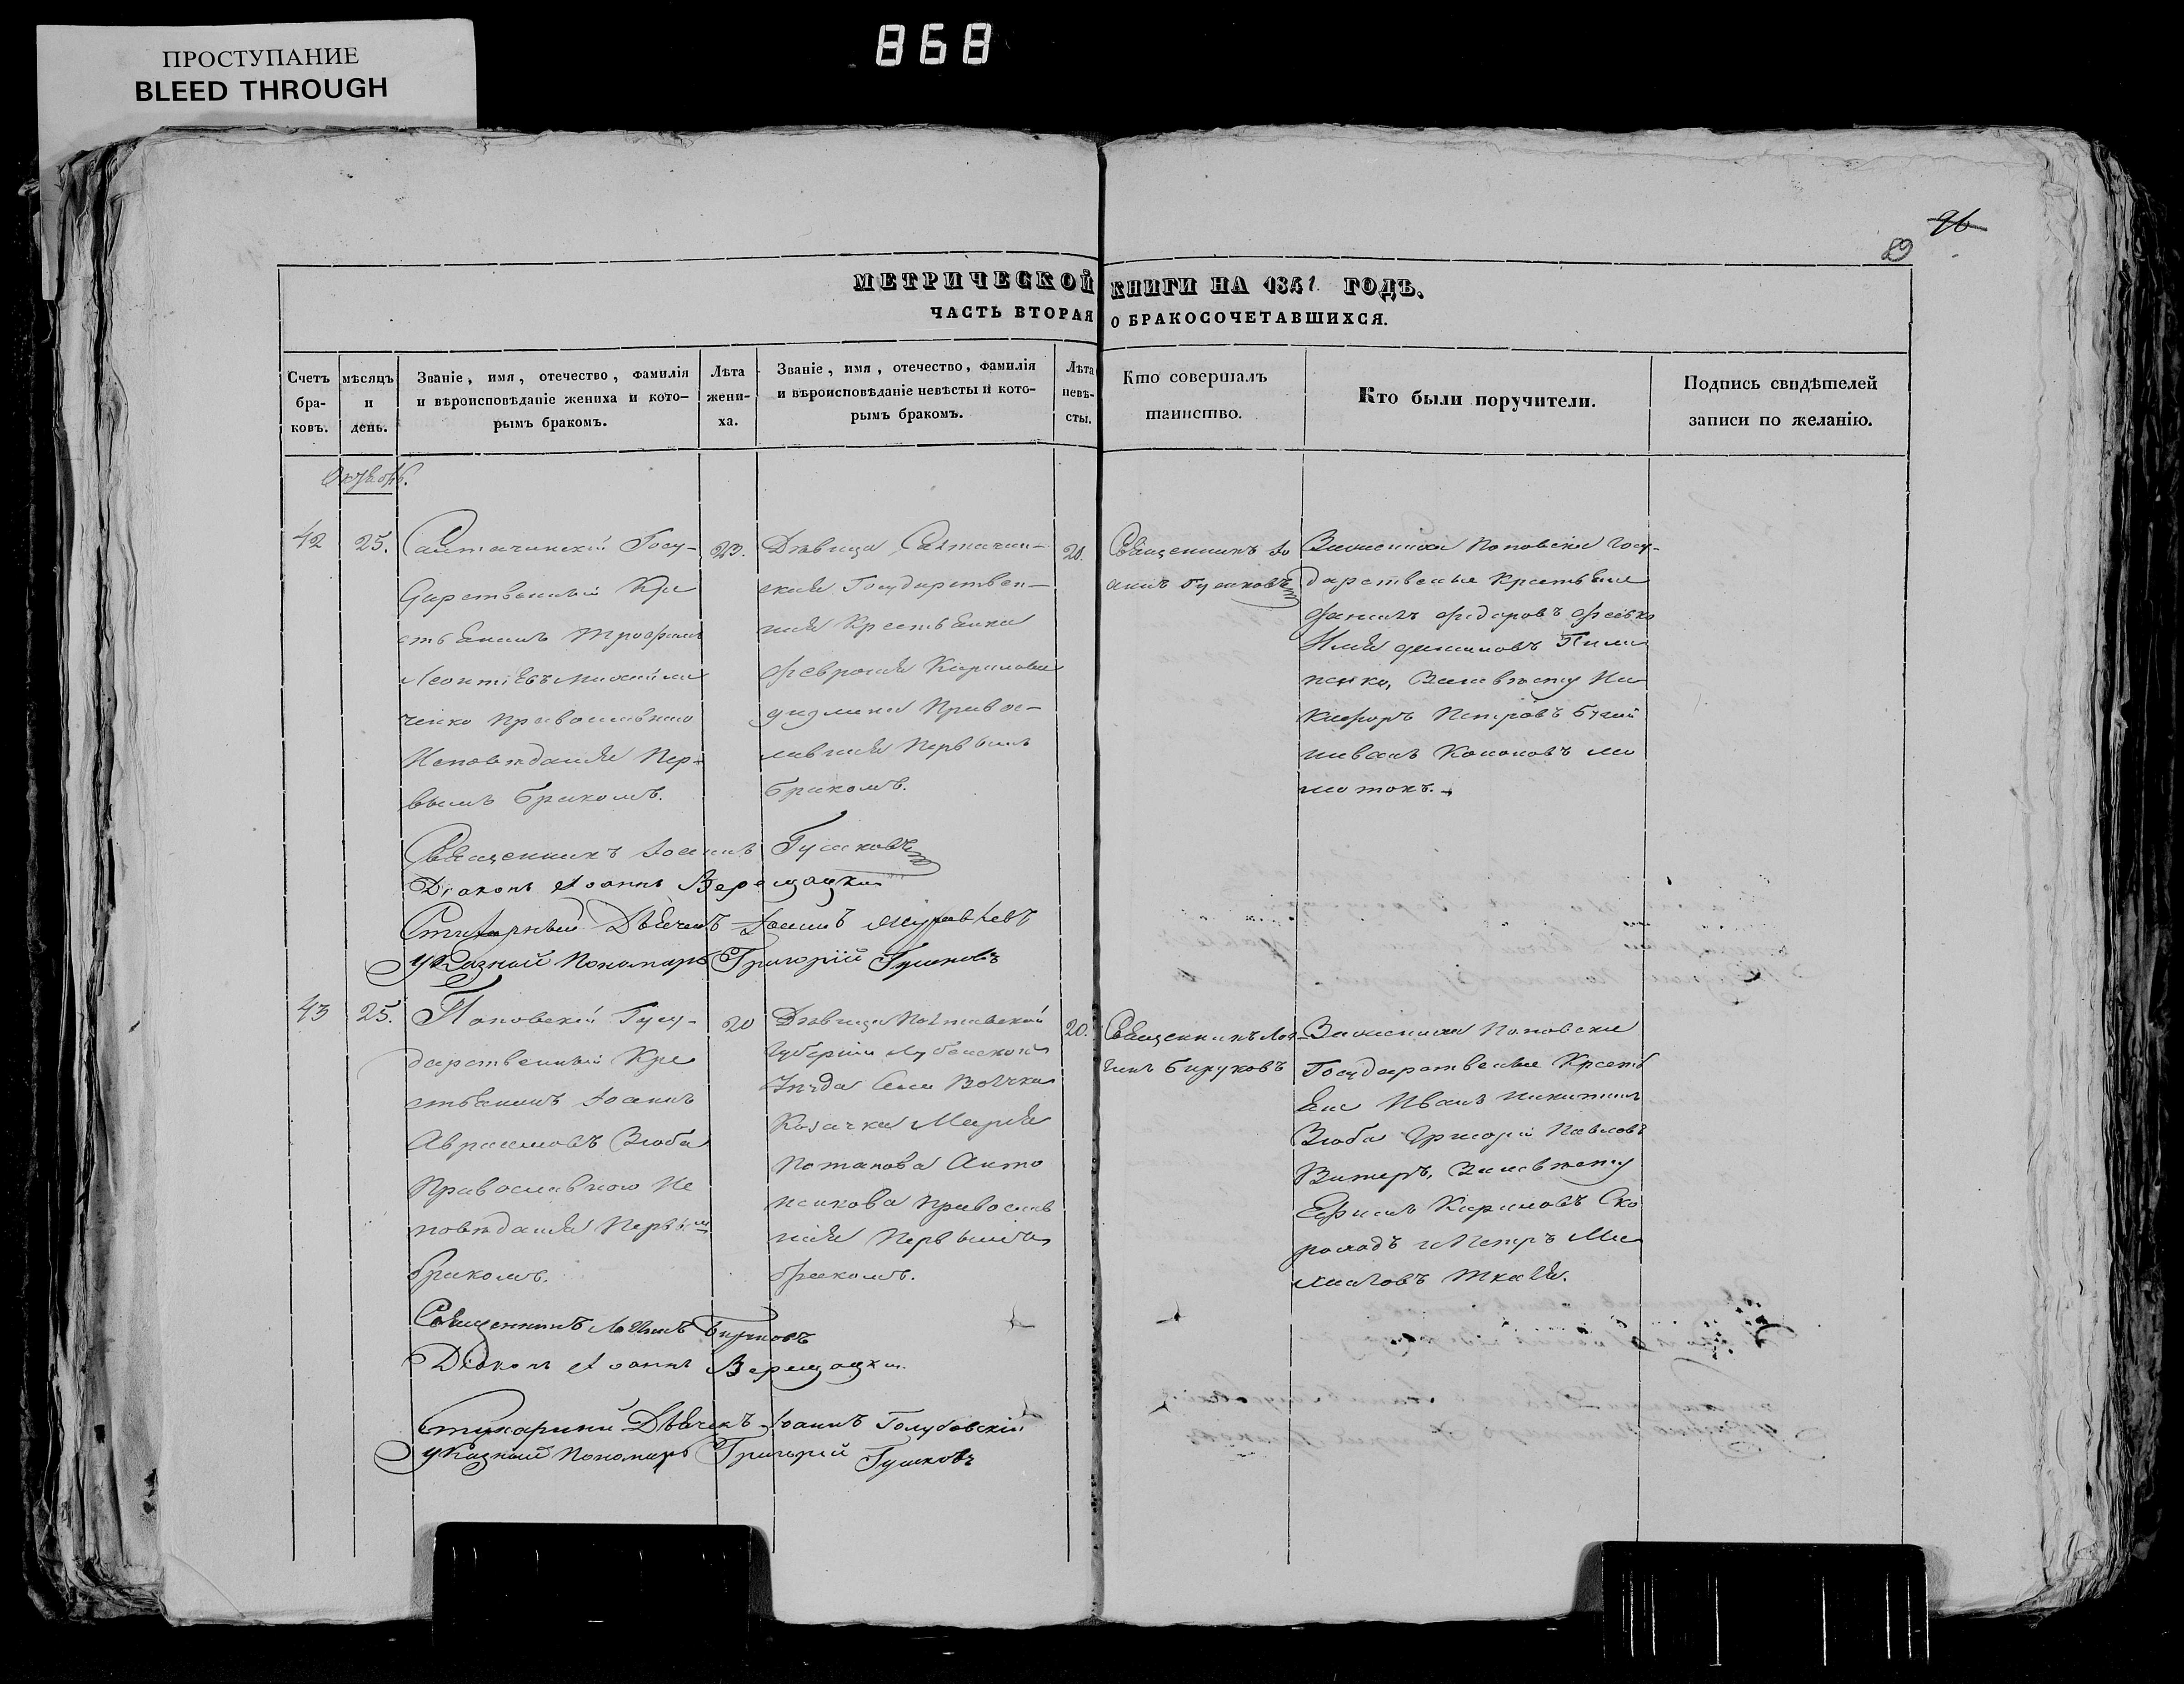 ПРОСТУПАНИЕ
BLEED THROUGH
868
96
89
МЕТРИЧЕСКОЙ КНИГИ НА 1841 ГОДЪ.
ЧАСТЬ ВТОРАЯ О БРАКОСОЧЕТАВШИХСЯ.
Счетъ
бра-
ковъ.
мѣсяцъ
и
день.
Званіе, имя, отечество, фамилія
и вѣроисповѣданіе жениха и кото-
рымъ бракомъ.
Лѣта
жени-
ха.
Званіе, имя, отечество, фамилія
и вѣроисповѣданіе невѣсты и кото-
рымъ бракомъ.
Лѣта
невѣ-
сты.
Кто совершалъ
таинство.
Кто были поручители.
Подпись свидѣтелей
записи по желанію.
Октябрь.
42
25.
Салтачинскій Госу-
дарственный Кре
стьянинъ Трофимъ
Леонтіевъ
ченко Православнаго
Исповѣданія Пер-
вымъ бракомъ.
23.
Дѣвица Салтачин-
ская Государствен-
ная Крестьянка
Феврония Кирилова
Правос-
лавная Первымъ
бракомъ.
20.
Священникъ Іо
аннъ Гусаковъ
Поповски Госу-
дарственые Крестьяне
Федоровъ
Илия
пенко,
Никифоръ Петровъ
Кононовъ
Священникъ Іоаннъ Гусаковъ
Діаконъ Іоаннъ Верещацкій
Стихарный Дьячекъ Іоаннъ Журавлевъ
Указной Пономарь Григорій Гушковъ
43
25.
Поповскій Госу-
дарственный Кре
стьянинъ Іоаннъ
Авраамовъ Зюба
Православного Ис
повѣдания Первымъ
бракомъ.
20
Дѣвица Полтавской
Губерніи Лубенского
Уѣзда Села
Козачка Мария
Потапова Анто
ненкова Православ
ная Первымъ
бракомъ.
20.
Священникъ Лог
гинъ Бируковъ
Поповски
Государственые Кресть
яне Иванъ Никитинъ
Зюба Григорій Павловъ
Ефимъ Кириловъ Ско
роходъ и Петръ Ми
хайловъ Ткаля.
Священникъ Логгинъ Бируковъ
Діаконъ Іоаннъ Верещацкій
Стихарный Дьячекъ Іоаннъ Голубовскій
Указный Пономарь Григорій Гушковъ